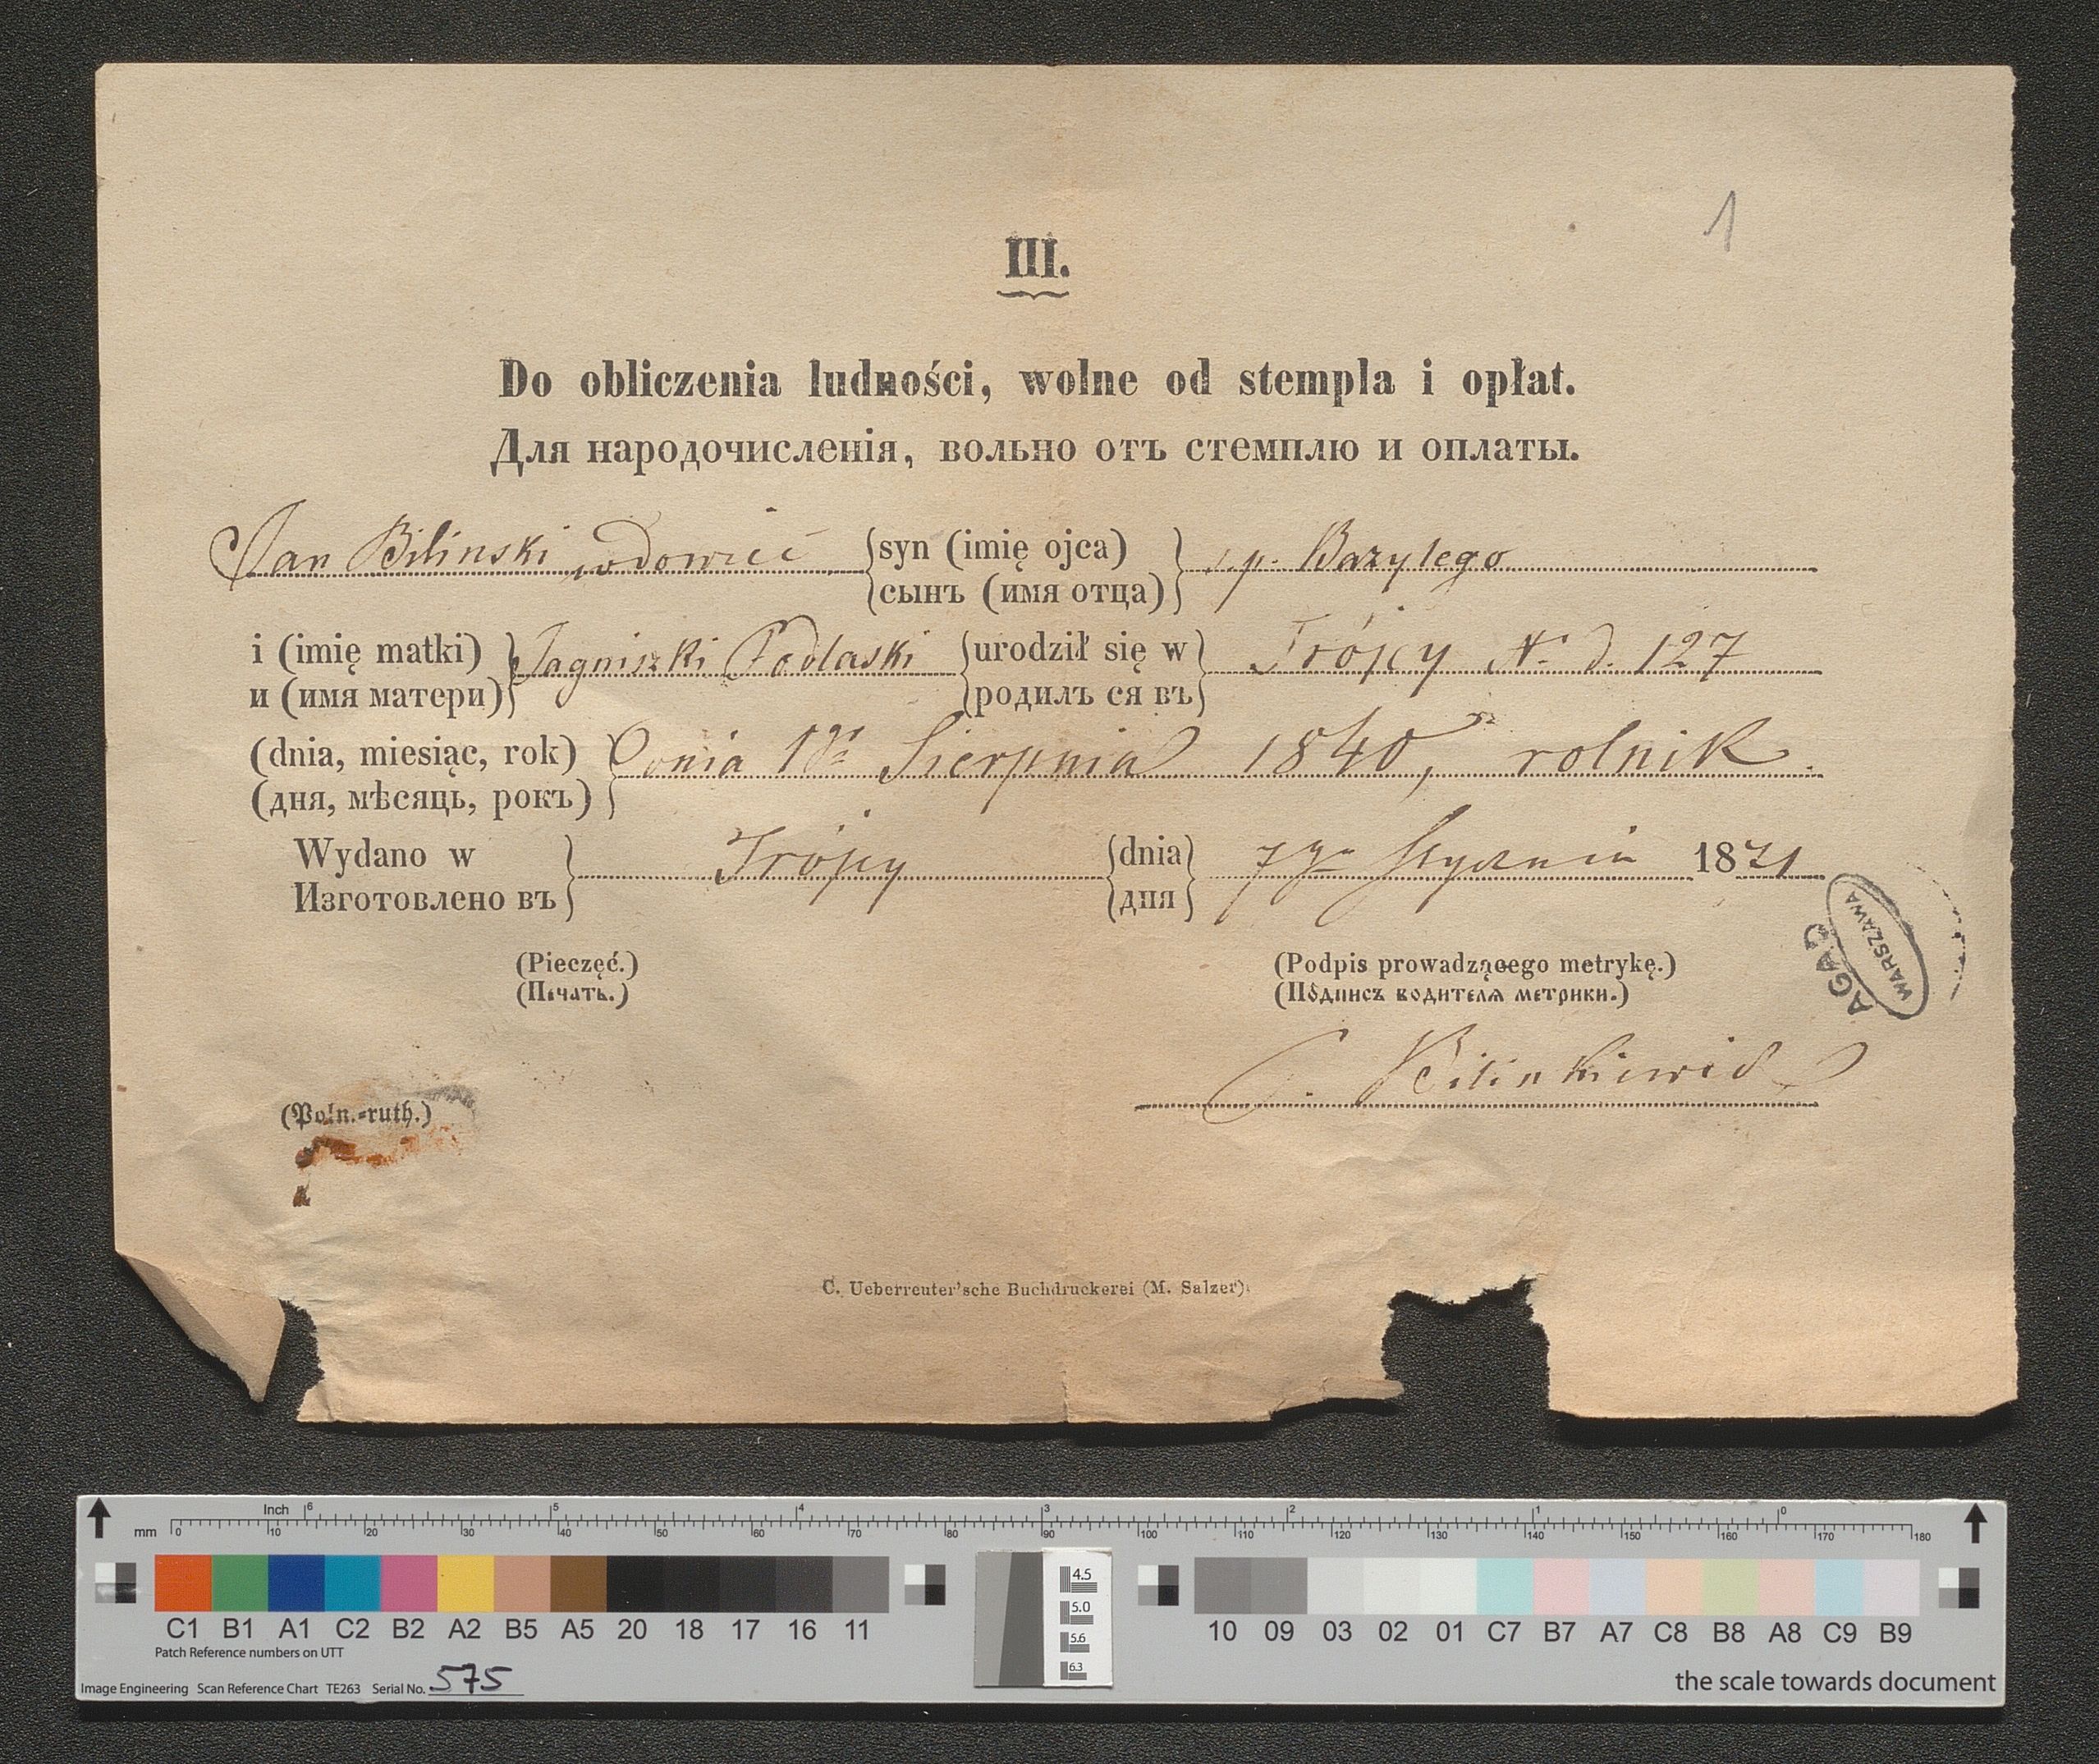 1
III.
Do obliczenia ludności, wolne od stempla i opłat.
Для народочисленія, вольно отъ стемплю и оплаты.
Jan Bilinski wdowiec {syn (imię ojca)} ś.p. Bazylego
{сынъ (имя отца)}
i (imię matki)} Jagniszki Podlaski {urodził się w} Trójcy N. d. 127
и (имя матери)} {родилъ ся въ}
(dnia, miesiąc, rok)} dnia 1go Sierpnia 1840, rolnik.
(дня, мѣсяць, рокъ)}
Wydano w} Trójcy {dnia} 7go Stycznia 1871
Изготовлено въ} {дня}
(Pieczęć.) (Podpis prowadzącego metrykę.)
(Печать.) (Подписъ водителѧ метрики.)
AGAD
WARSZAWA
Bilinkiewicz
(Poln.-ruth.)
C. Ueberreuter'sche Buchdruckerei (M. Salzer).
Inch 6 5 4 3 2 1 0
mm 0 10 20 30 40 50 60 70 80 90 100 110 120 130 140 150 160 170 180
4.5
5.0
5.6
6.3
C1 B1 A1 C2 B2 A2 B5 A5 20 18 17 16 11 10 09 03 02 01 C7 B7 A7 C8 B8 A8 C9 B9
Patch Reference numbers on UTT
Image Engineering Scan Reference Chart TE263 Serial No. 575
the scale towards document